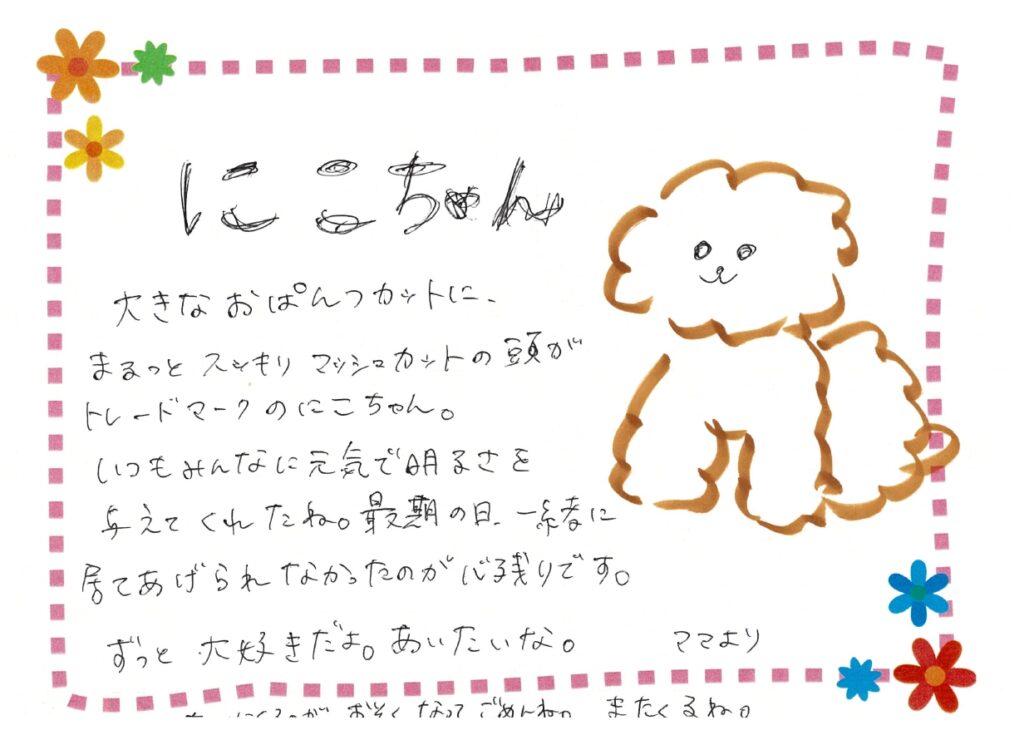 にこちゃん
大きなおぱんつカットに、
まるっとスッキリマッシュカットの頭が
トレードマークのにこちゃん。
いつもみんなに元気で明るさを
与えてくれたね。最期の日、一緒に
居てあげられなかったのが心残りです。
ずっと大好きだよ。あいたいな。
ママより
おそくなってごめんね。またくるね。